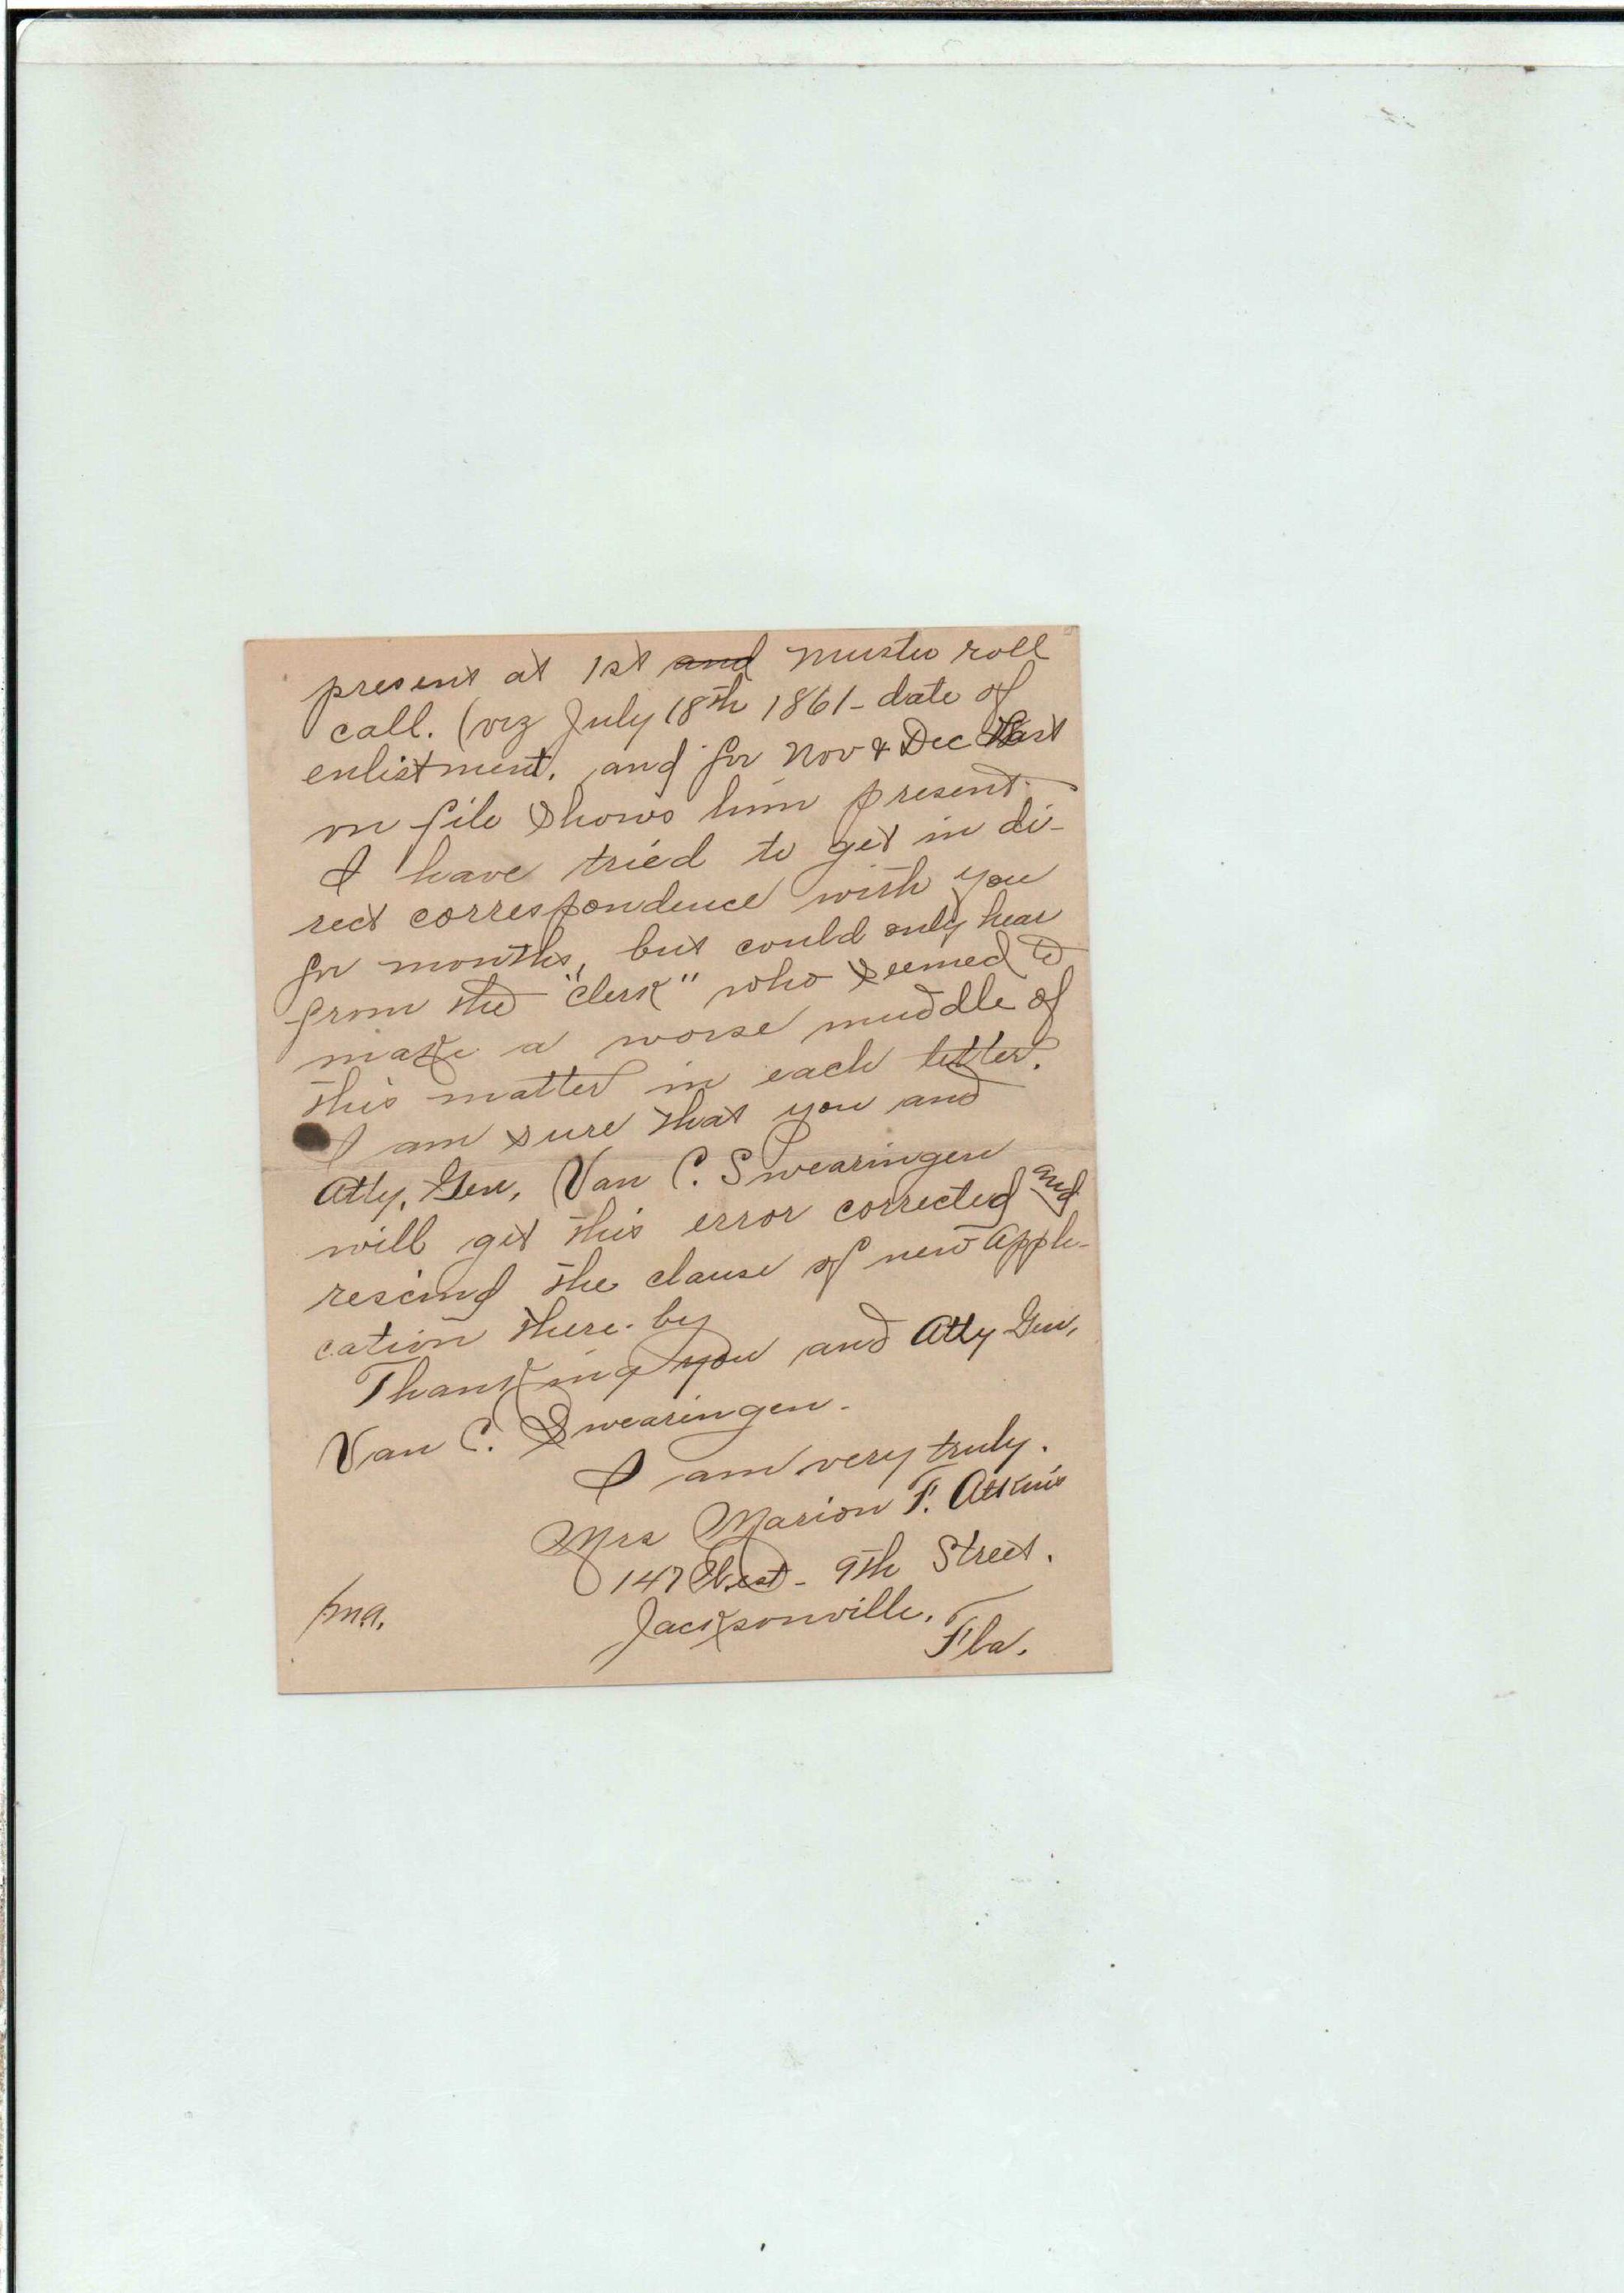 present at 1st and muster roll
call. (viz July 18th 1861 - date of
enlistment. and for Nov & Dec last
on file shows him present.
I have tried to get in di-
rect correspondence with you
for months, but could only hear
from the "clerk" who seemed to
make a worse muddle of
this matter in each letter.
I am sure that you and
Atty. Gen, Van C. Swearingen
will get this error corrected and
rescind the clause of new Appli-
cation there-by
Thanking you and Atty Gen,
Van C. Swearingen.
I am very truly.
Mrs Marion F. Atkins
147 West - 9th Street.
Jacksonville.
Fla.